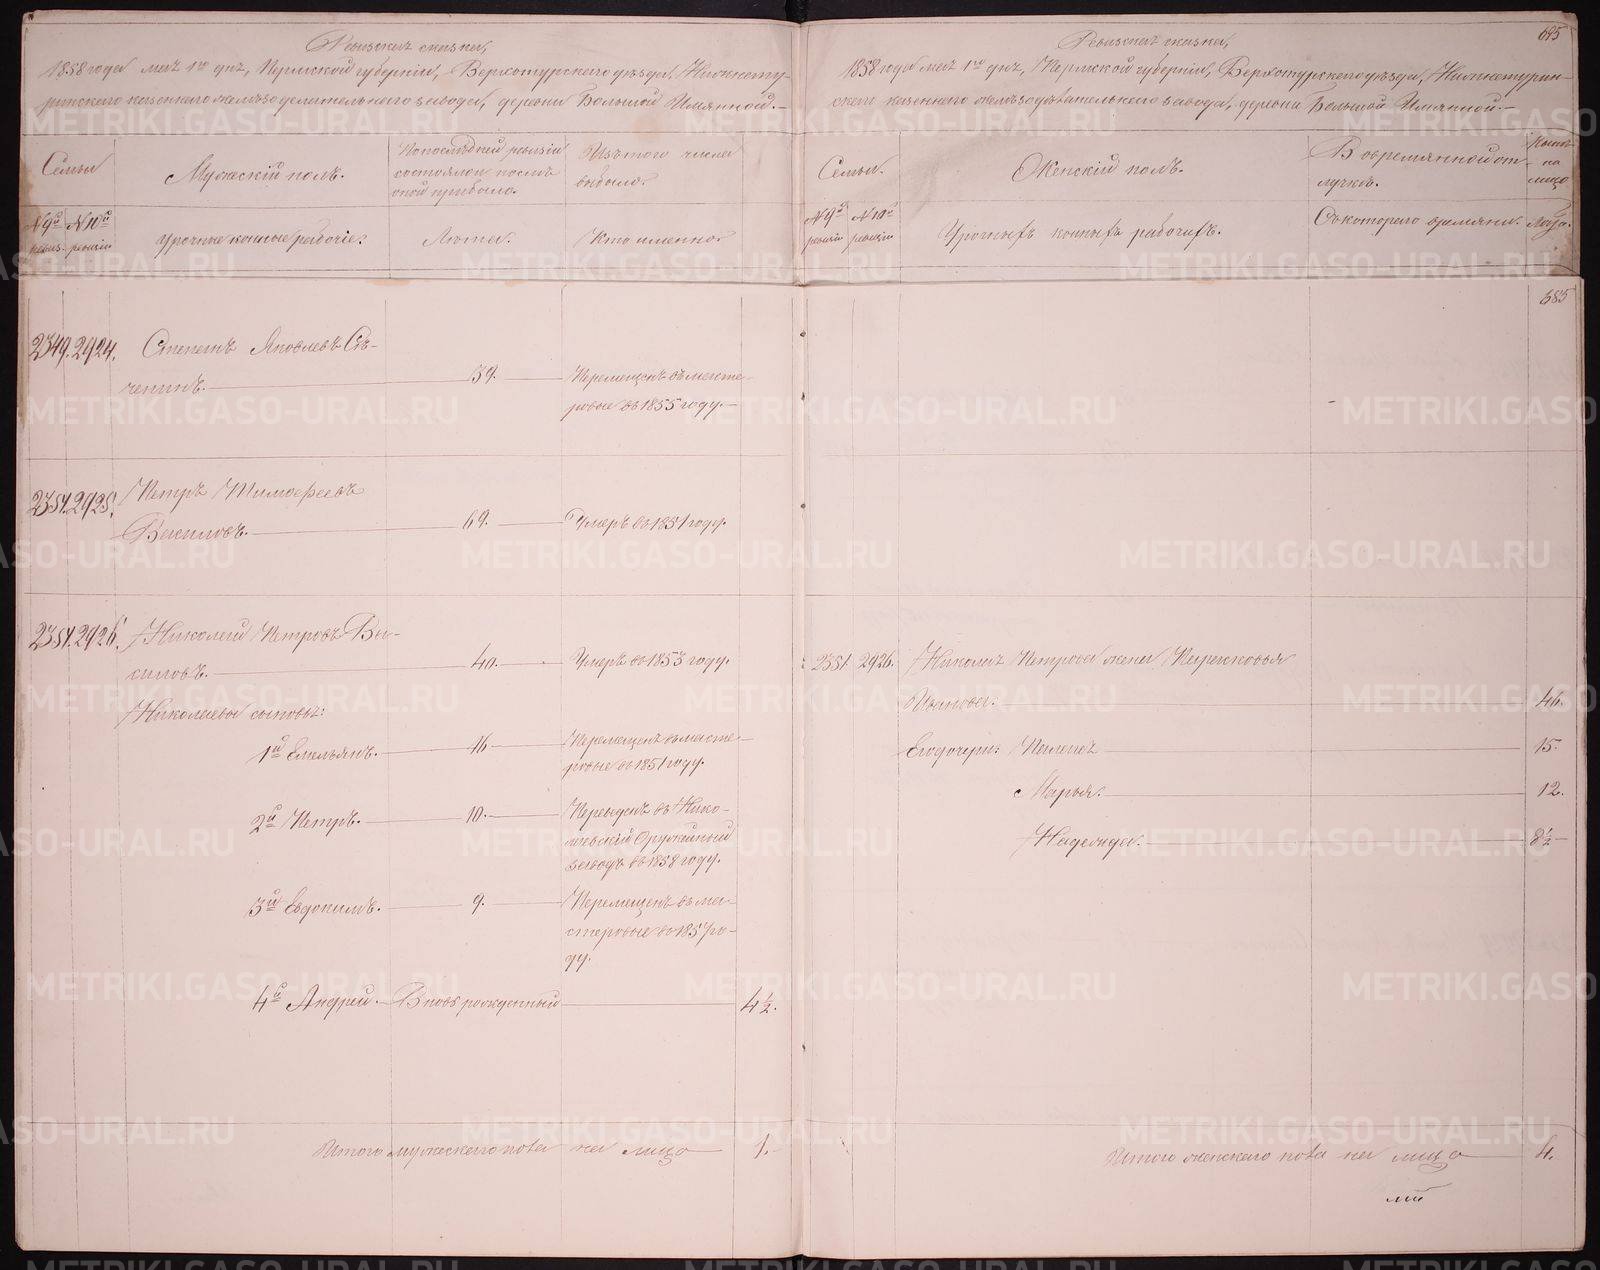 Ревизская сказка,
1858 года мая 1го дня, Пермской губернии, Верхотурского уезда, Нижнету-
ринского казенного железоделательного завода, деревни Большой Имянной.
Семьи
Мужеский полъ.
По последней ревизіи
состояло и после
оной прибыло.
Изъ того числа
выбыло.
№ 9й ревиз.
№ 10й ревизіи
Урочные конные рабочіе.
Лета.
Кто именно
2349. 2924. Степанъ Яковлевъ Съ-
чининъ. 39. Перемещенъ въ масте-
ровые въ 1855 году.
2351. 2925. Петръ Тимофеевъ
Василовъ. 69. Умеръ въ 1851 году.
2351. 2926. Николай Петровъ Ва-
силовъ. 40. Умеръ въ 1853 году.
Николаевы сыновья:
1й Емельянъ. 16 Перемещенъ въ масте-
ровые въ 1851 году.
2й Петръ. 10. Переведенъ въ Нико-
лаевскій Оружейный
заводъ въ 1858 году.
3й Евдокимъ. 9. Перемещенъ въ ма-
стеровые въ 1857 го-
ду.
4й Андрей. Вновь рожденный 4½.
Итого мужескаго пола на лицо 1.
685
Ревизская сказка,
1858 года мая 1го дня, Пермской губернии, Верхотурского уезда, Нижнетурин-
ского казенного железоделательного завода, деревни Большой Имянной.
Семьи.
Женскій полъ.
В овремянной от-
лучке.
Ныне
на
лицо
№ 9й ревизіи
№ 10й ревизіи
Урочныхъ конныхъ рабочихъ.
Съ котораго времяни.
Лета.
685
2351. 2926. Николая Петрова жена Парасковья
Иванова. 46.
Его дочери: Палагея 15.
Марья. 12.
Надежда. 8½
Итого женскаго пола на лицо 4.
METRIKI.GASO-URAL.RU